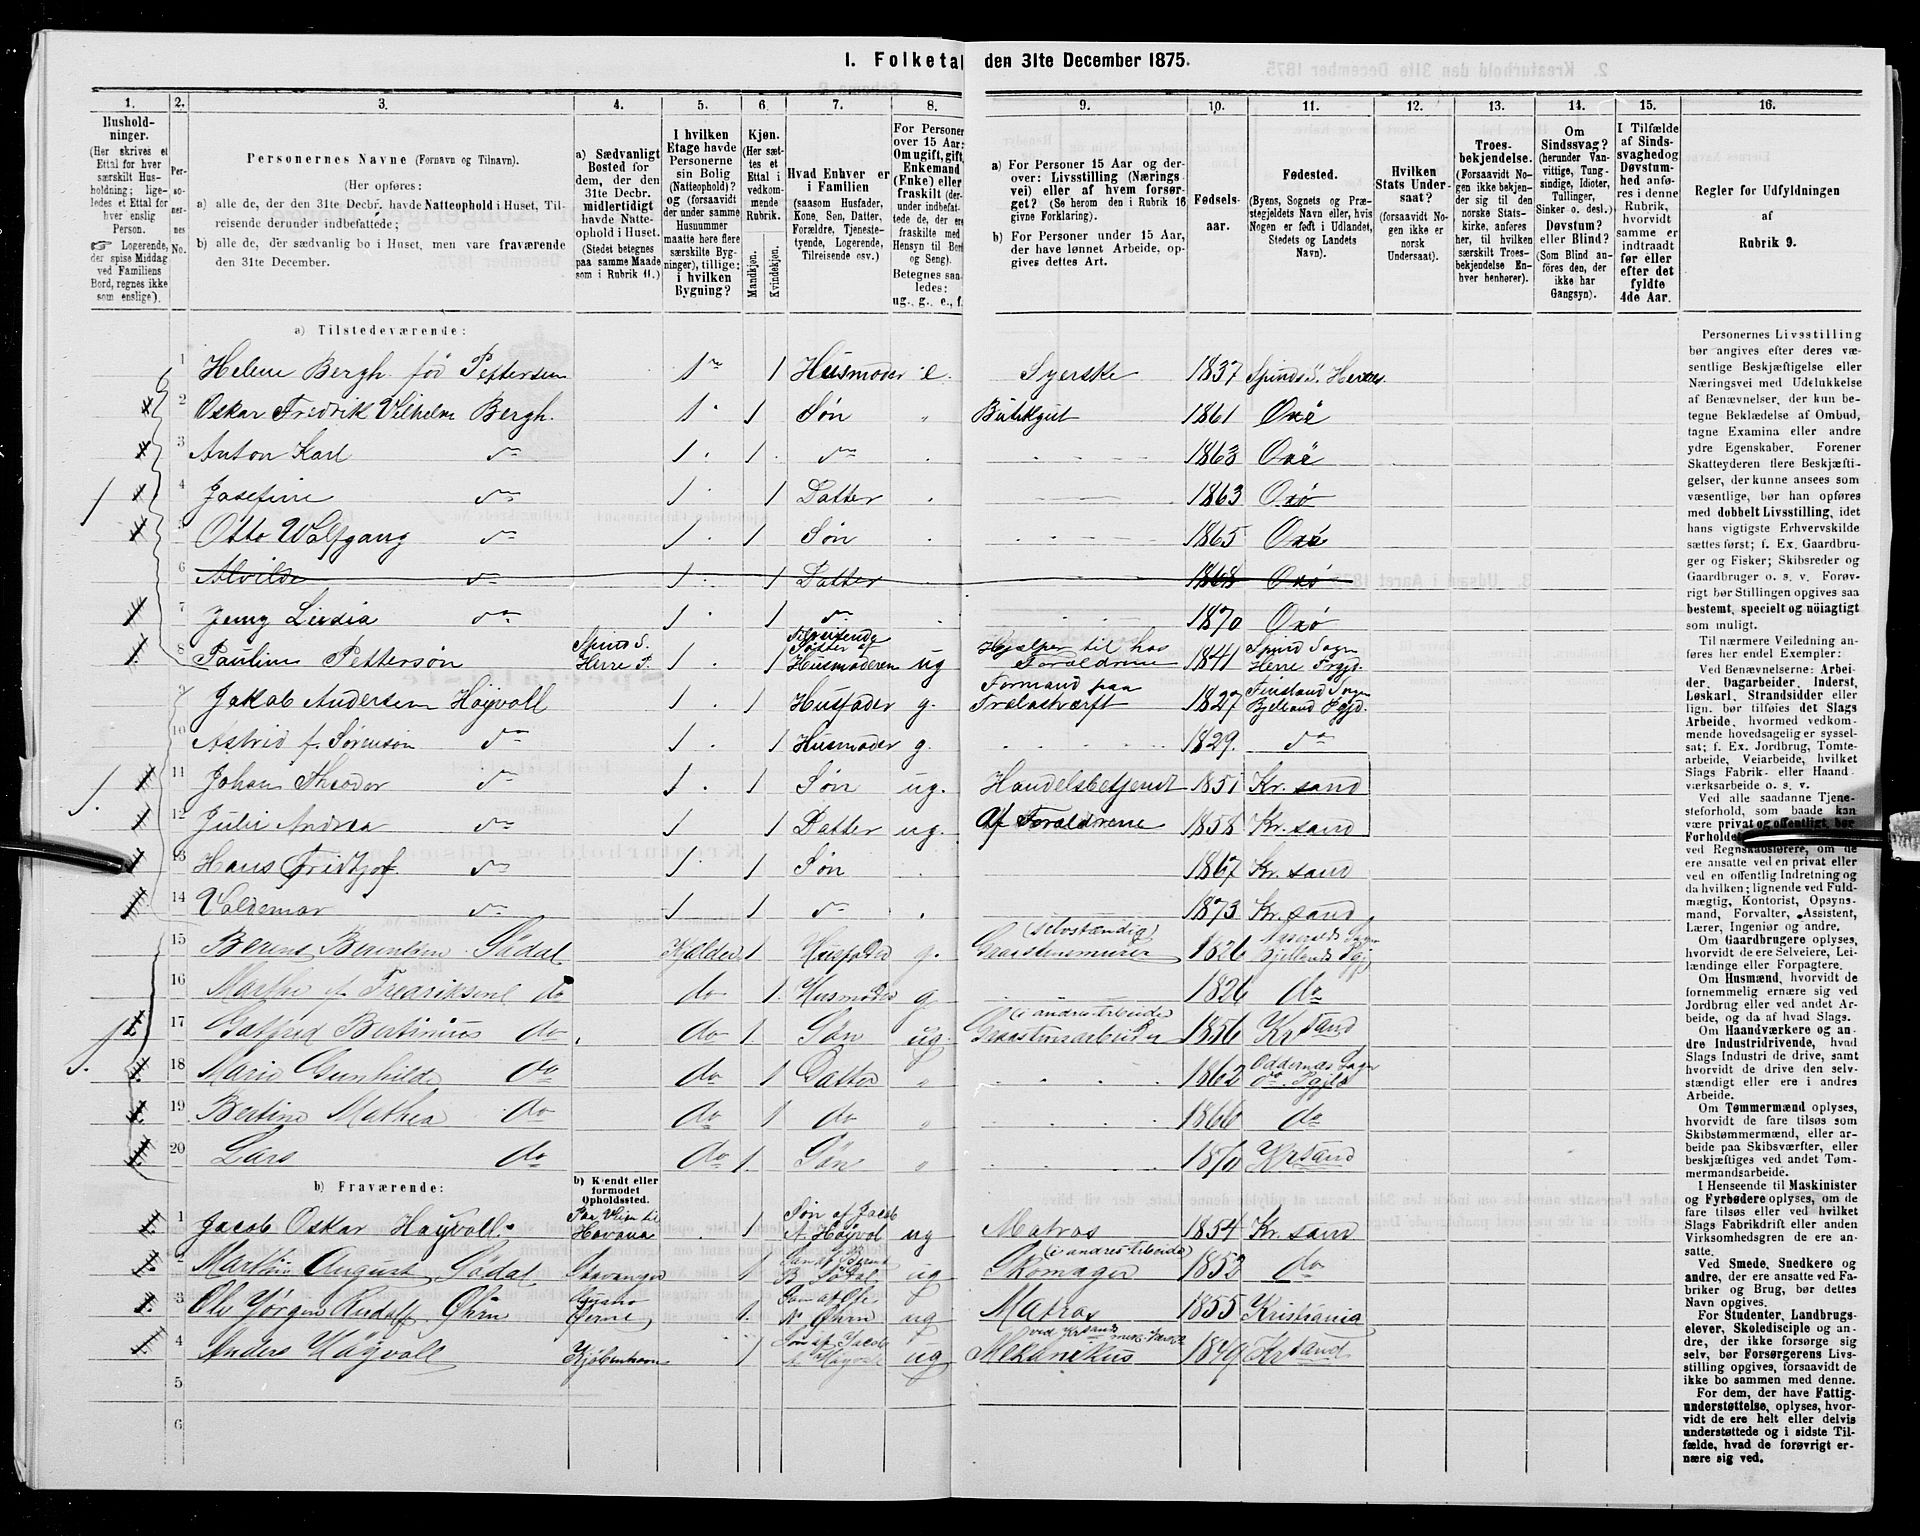 I. Folketal den 31te December 1875.
1. 2. 3. 4. 5. 6. 7. 8. 9. 10. 11. 12. 13. 14. 15. 16.
Husholdninger.
(Her skrives et Ettal for hver særskilt Husholdning; ligeledes et Ettal for hver enslig Person.
☞ Logerende, der spise Middag ved Familiens Bord, regnes ikke som enslige).
Personernes No.
Personernes Navne (Fornavn og Tilnavn).
(Her opføres:
a) alle de, der den 31te Decbr. havde Natteophold i Huset, Tilreisende derunder indbefattede;
b) alle de, der sædvanlig bo i Huset, men vare fraværende den 31te December.
a) Sædvanligt Bosted for dem, der den 31te Decbr. midlertidigt havde Natteophold i Huset.
(Stedet betegnes paa samme Maade som i Rubrik 11.)
I hvilken Etage havde Personerne sin Bolig (Natteophold)? og (forsaavidt der under samme Husnummer maatte høre flere særskilte Bygninger), tillige: i hvilken Bygning?
Kjøn.
(Her sættes et Ettal i vedkommende Rubrik.
Mandkjøn. Kvindekjøn.
Hvad Enhver er i Familien
(saasom Husfader, Kone, Søn, Datter, Forældre, Tjenestetyende, Logerende, Tilreisende osv.)
For Personer over 15 Aar: Om ugift, gift, Enkemand (Enke) eller fraskilt
Betegnes saaledes:
ug., g., e., f.
a) For Personer 15 Aar og derover: Livsstilling (Næringsvei) eller af hvem forsørget? (Se herom den i Rubrik 16 givne Forklaring).
b) For Personer under 15 Aar, der have lønnet Arbeide, opgives dettes Art.
Fødselsaar.
Fødested.
(Byens, Sognets og Præstegjeldets Navn eller, hvis Nogen er født i Udlandet, Stedets og Landets Navn).
Hvilken Stats Undersaat?
(forsaavidt Nogen ikke er norsk Undersaat).
Troesbekjendelse.
(Forsaavidt Nogen ikke bekjender sig til den norske Statskirke, anføres her, til hvilken særskilt Troesbekjendelse Enhver henhører).
Om Sindssvag? (herunder Vanvittige, Tungsindige, Idioter, Tullinger, Sinker o. desl.) Døvstum? eller Blind? (Som Blind anføres den, der ikke har Gangsyn).
I Tilfælde af Sindssvaghed og Døvstumhed anføres i denne Rubrik, hvorvidt samme er indtraadt før eller efter det fyldte 4de Aar.
Regler for Udfyldningen af Rubrik 9.
a) Tilstedeværende:
1 Helene Bergh fød Pettersen 1 1 Husmoder e. Syerske 1837 Spinds S. Herres
2 Oskar Fridrik Vilhelm Bergh. 1 1 Søn Butikgut 1861 Oxø
3 Anton Karl 1 1 1863 Oxø
4 Josefine 1 1 Datter 1863 Oxø
5 Otto Wolfgang 1 1 Søn 1865 Oxø
6 Alvilde 1 1 Datter 1868 Oxø
7 Jenny 1 1 1870 Oxø
8 Pauline Petterson Spinds S. Herre P. 1 1 Tilreisende Søster af Husmoderen ug Hjælper til hos Foræeldrene 1841 Spind Sogn Herre Prgjd.
9 Jakob Andersen Høyvoll 1 1 Husfader g. Formand paa Trælastværft 1827 Finsland Sogn Bjelland Pgjd.
10 Astrid f. Sørenson 1 1 Husmoder g. 1829.
11 Johan Theodor 1 1 Søn ug. Handelsbetjendt 1851 Kr. sand
12 Juli Andrea 1 1 Datter ug. Af Forældrene 1858 Kr. sand
13 Hans Fridtjof 1 1 Søn 1867 Kr. sand
14 Valdemar 1 1 1873 Kr. sand
15 Berent Berentsen Sødal Kjelder 1 Husfader g. (selvstændig) Graastensmurer 1826 Sogn Bjellands Pgjd
16 Marthe f. Fredriksen do do 1. Husmoder g 1826 do
17 Gotfred Bertinius do do 1 Søn ug (i andres Arbeide) Graastensarbeider 1856 Krsand
18 Marie Gunhilde do do 1 Datter 1862 Oddernes Sogn do Pgjld
19 Bertine Mathea do do 1 do 1866 do
20 Lars do do 1. Søn 1870 Krsand
b) Fraværende:
b) Kjendt eller formodet Opholdssted.
1 Jacob Oskar Høyvoll. Paa Reise til Havana 1 Søn af Jacob A Høyvol ug Matros 1854 Kr. sand
2 Martin August Sødal. Stavanger 1 B Sødal ug (i andres Arbeide) Skomager 1853 do
3 Ole Jørgen Rudolf Øhrn 1. Søn af Ole N Øhrn ug Matros 1855 Kristiania
4 Anders Høyvoll Kjøbenhavn 1 Søn af Jacob A Høyvold ug Mekanikus 1849 Krsand
5
6
Personernes Livsstilling bør angives efter deres væsentlige Beskjæftigelse eller Næringsvei med Udelukkelse af Benævnelser, der kun betegne Beklædelse af Ombud, tagne Examina eller andre ydre Egenskaber. Forener Skatteyderen flere Beskjæftigelser, der kunne ansees som væsentlige, bør han opføres med dobbelt Livsstilling, idet hans vigtigste Erhvervskilde sættes først; f. Ex. Gaardbruger og Fisker; Skibsreder og Gaardbruger o. s. v. Forøvrigt bør Stillingen opgives saa bestemt, specielt og nöiagtigt som muligt.
Til nærmere Veiledning anføres her endel Exempler:
Ved Benævnelserne: Arbeider, Dagarbeider, Inderst, Løskarl, Strandsidder eller lign. bør tilføies det Slags Arbeide, hvormed vedkommende hovedsagelig er sysselsat; f. Ex. Jordbrug, Tomtearbeide, Veiarbeide, hvilket Slags Fabrik- eller Haandværksarbeide o. s. v.
Ved alle saadanne Tjenesteforhold, som baade kan være privat og offentligt, bør Forholdet
ved Regnskabsførere, om de ere ansatte ved en privat eller ved en offentlig Indretning og da hvilken; lignende ved Fuldmægtig, Kontorist, Opsynsmand, Forvalter, Assistent, Lærer, Ingeniør og andre.
Om Gaardbrugere oplyses, hvorvidt de ere Selveiere, Leilændinge eller Forpagtere.
Om Husmænd, hvorvidt de fornemmelig ernære sig ved Jordbrug eller ved andet Arbeide, og da af hvad Slags.
Om Haandværkere og andre Industridrivende, hvad Slags Industri de drive, samt hvorvidt de drive den selvstændigt eller ere i andres Arbeide.
Om Tømmermænd oplyses, hvorvidt de fare tilsøs som Skibstømmermænd, eller arbeide paa Skibsværfter, eller beskjæftiges ved andet Tømmermandsarbeide.
I Henseende til Maskinister og Fyrbødere oplyses, om de fare tilsøs eller ved hvilket Slags Fabrikdrift eller anden Virksomhedsgren de ere ansatte.
Ved Smede, Snedkere og andre, der ere ansatte ved Fabriker og Brug, bør dettes Navn opgives.
For Studenter, Landbrugselever, Skoledisciple og andre, der ikke forsørge sig selv, bør Forsørgerens Livsstilling opgives, forsaavidt de ikke bo sammen med denne.
For dem, der have Fattigunderstøttelse, oplyses, hvorvidt de ere helt eller delvis understøttede og i sidste Tilfælde, hvad de forøvrigt ernære sig ved.